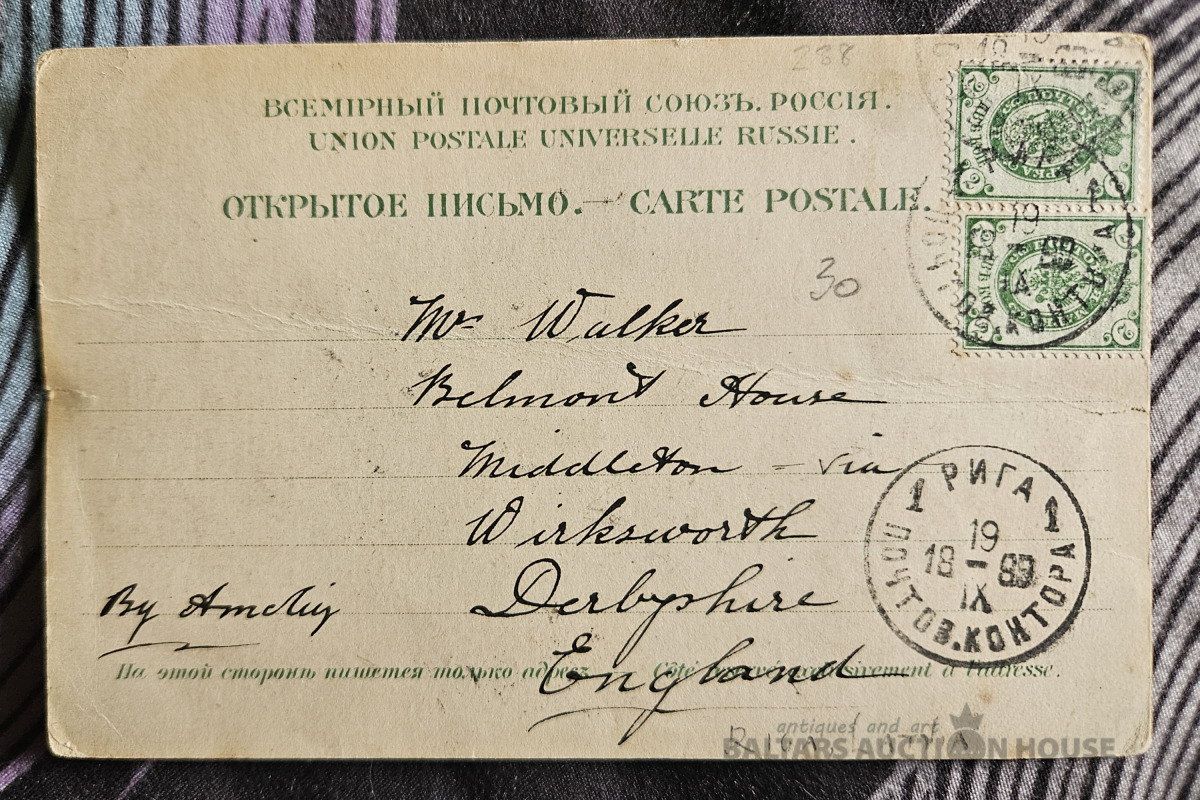 238
ВСЕМІРНЫЙ ПОЧТОВЫЙ СОЮЗЪ. РОССІЯ.
UNION POSTALE UNIVERSELLE RUSSIE.
ОТКРЫТОЕ ПИСЬМО. — CARTE POSTALE.
19
30
Mr Walker
Belmont House
Middleton - via
Wirksworth
Derbyshire
England
By Amelia
1 РИГА 1
19
18 - 99
IX
ПОЧТОВ. КОНТОРА
На этой сторонѣ пишется только адресъ. — Côté réservé exclusivement à l'adresse.
antiques and art
BALTARS AUCTION HOUSE